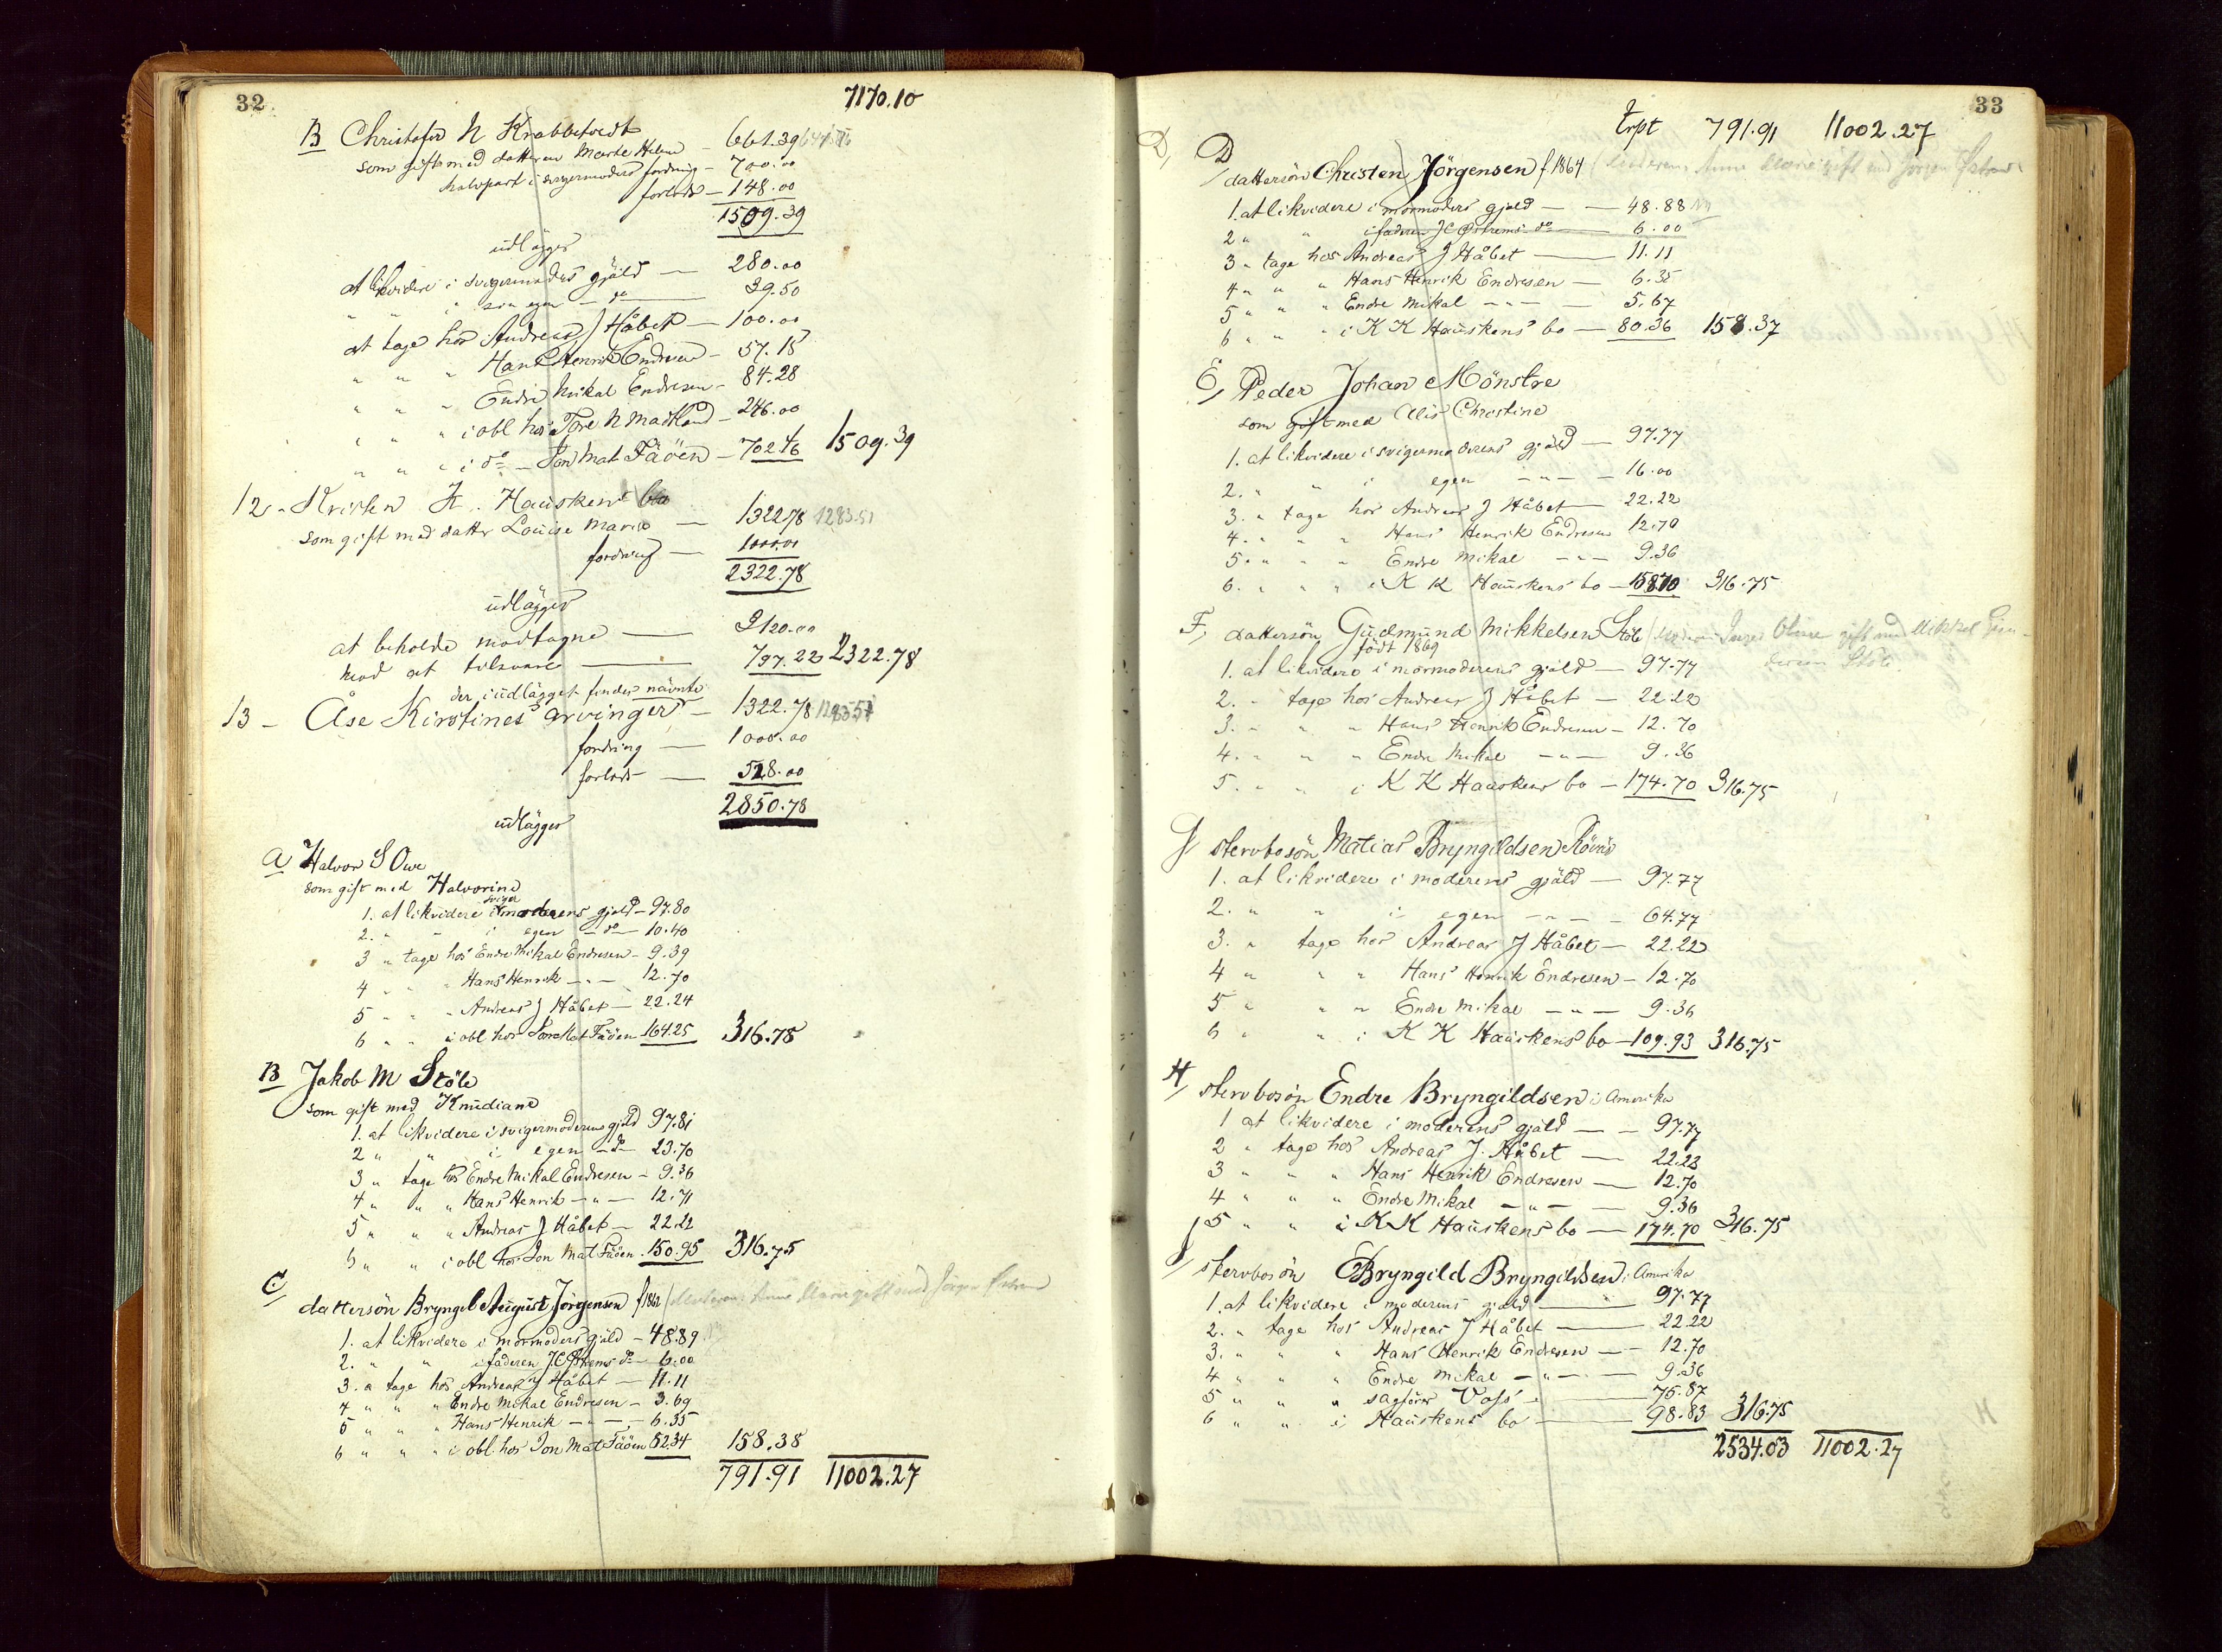 32
7170.10
B Christofer N Krabbetvedt
som gift med datteren Marte Helene – 661.39
halvpart i svigermoders fordring – 700.00
forlods – 148.00
1509.39
udlägges
at likvidere i svigermoders gjäld — 280.00
" " " sin egen — do — 39.50
at tage hos Andreas J Håbet — 100.00
" " " Hans Henrik Endresen – 57.15
" " " Endre Mikal Endresen – 84.28
" " " i obl hos Tore N Madland – 246.00
" " " i do – Jon Mat. Fäöen – 702.46 1509.39
12 – Kristen K. Hauskens bo
som gift med datter Louise Marie — 1322.78 1283.51
fordring — 1000.00
2322.78
udlägges
at beholde modtagne — 3120.00
mod at tilsvare — 797.22 2322.78
der i udlägget findes nävnte
13 – Åse Kirstines arvinger – 1322.78 1283.51
fordring — 1000.00
forlods — 528.00
2850.78
udlägges
A Halvor S Owe
som gift med Halvorine
sviger
1. at likvidere i moderens gjeld – 97.80
2. " " i egen – do – 10.40
3 " tage hos Endre Mikal Endresen – 9.39
4 " " " Hans Henrik – " – 12.70
5 " " " Andreas J Håbet – 22.24
6 " " i obl hos Jon Mat Fäöen 164.25 316.78
B Jakob M Stöle
som gift med Knudiane
1. at likvidere i svigermoderens gjeld 97.81
2 " " i egen – do – 23.70
3 " tage hos Endre Mikal Endresen – 9.36
4 " " " Hans Henrik – " – 12.71
5 " " " Andreas J Håbet – 22.22
6 " " i obl hos Jon Mat Fäöen . 150.95 316.75
C, dattersön Bryngel August Jörgensen f 1862 (Moderen Anne Marie gift med Jörgen
1. at likvidere i mormoders gjäld – 48.89
2. " " i faderen J C Östrems do – 6.00
3. " tage hos Andreas J Håbet — 11.11
4 " " " Endre Mikal Endresen – 3.69
5 " " " Hans Henrik – " – 6.35
6 " " " i obl. hos Jon Mat Fäöen 82.34 158.38
791.91 11002.27
33
Trpt 791.91 11002.27
D, D
dattersön Christen Jörgensen f 1864 (Moderen Anne Marie gift med Jörgen
1. at likvidere i mormoders gjeld — — 48.88
2 " " i faderen J C Östrems do — 6.00
3 " tage hos Andreas J Håbet — 11.11
4 " " " Hans Henrik Endresen — 6.35
5 " " " Endre Mikal – " – — 5.67
6 " " " i K K Hauskens bo — 80.36 158.37
E, Peder Johan Mönstre
som gift med Christine
1. at likvidere i svigermoderens gjäld — 97.77
2. " " i egen – " – – 16.00
3. " tage hos Andreas J Håbet — 22.22
4. " " " Hans Henrik Endresen 12.70
5. " " " Endre Mikal – " – 9.36
6. " " " i K K Hauskens bo – 158.70 316.75
F, dattersön Gudmund Mikkelsen Stöle (Moderen Inger Oline gift med Mikkel Gum-
födt 1869 Stöle
1. at likvidere i mormoderens gjäld — 97.77
2. " tage hos Andreas J Håbet — 22.22
3. " " " Hans Henrik Endresen — 12.70
4. " " " Endre Mikal – " – 9.36
5. " " i K K Hauskens bo – 174.70 316.75
G stervbosön Matias Bryngildsen Rövär
1. at likvidere i moderens gjäld — 97.77
2. " " i egen – " – – 64.77
3. " tage hos Andreas J Håbet — 22.22
4 " " " Hans Henrik Endresen – 12.70
5 " " " Endre Mikal – " – 9.36
6 " " i K K Hauskens bo – 109.93 316.75
H, stervbosön Endre Bryngildsen i Amerika
1 at likvidere i moderens gjäld — — 97.77
2 " tage hos Andreas J. Håbet — 22.22
3 " " " Hans Henrik Endresen — 12.70
4 " " " Endre Mikal – " – — 9.36
5 " " i K K Hauskens bo — 174.70 316.75
I, stervbosön Bryngild Bryngildsen i Amerika
1. at likvidere i moderens gjeld — 97.77
2. " tage hos Andreas J Håbet — 22.22
3. " " " Hans Henrik Endresen — 12.70
4 " " " Endre Mikal – " – — 9.36
5 " " " sagförer Voss — 75.87
6 " " i Hauskens bo — 98.83 316.75
2534.03 11002.27